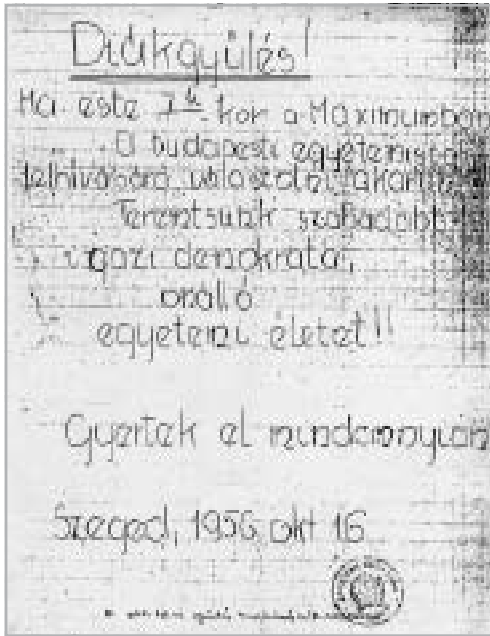 Diákgyülés!
Ma este 7h kor a Maximumban
A budapesti egyetemisták
felhívására válaszolni akarunk
Teremtsünk szabadabb
igazi demokratai,
önálló
egyetemi életet!!
Gyertek el mindannyian
Szeged, 1956 okt 16